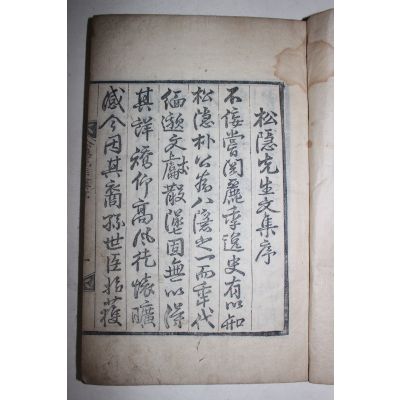 松隱先生文集序
不佞嘗閱麗季逸史有以知
松隱朴公爲八隱之一而年代
緬邈文獻散墜固無以深
其詳矯仰高風徒懷曠
感今因其裔孫世臣拓獲